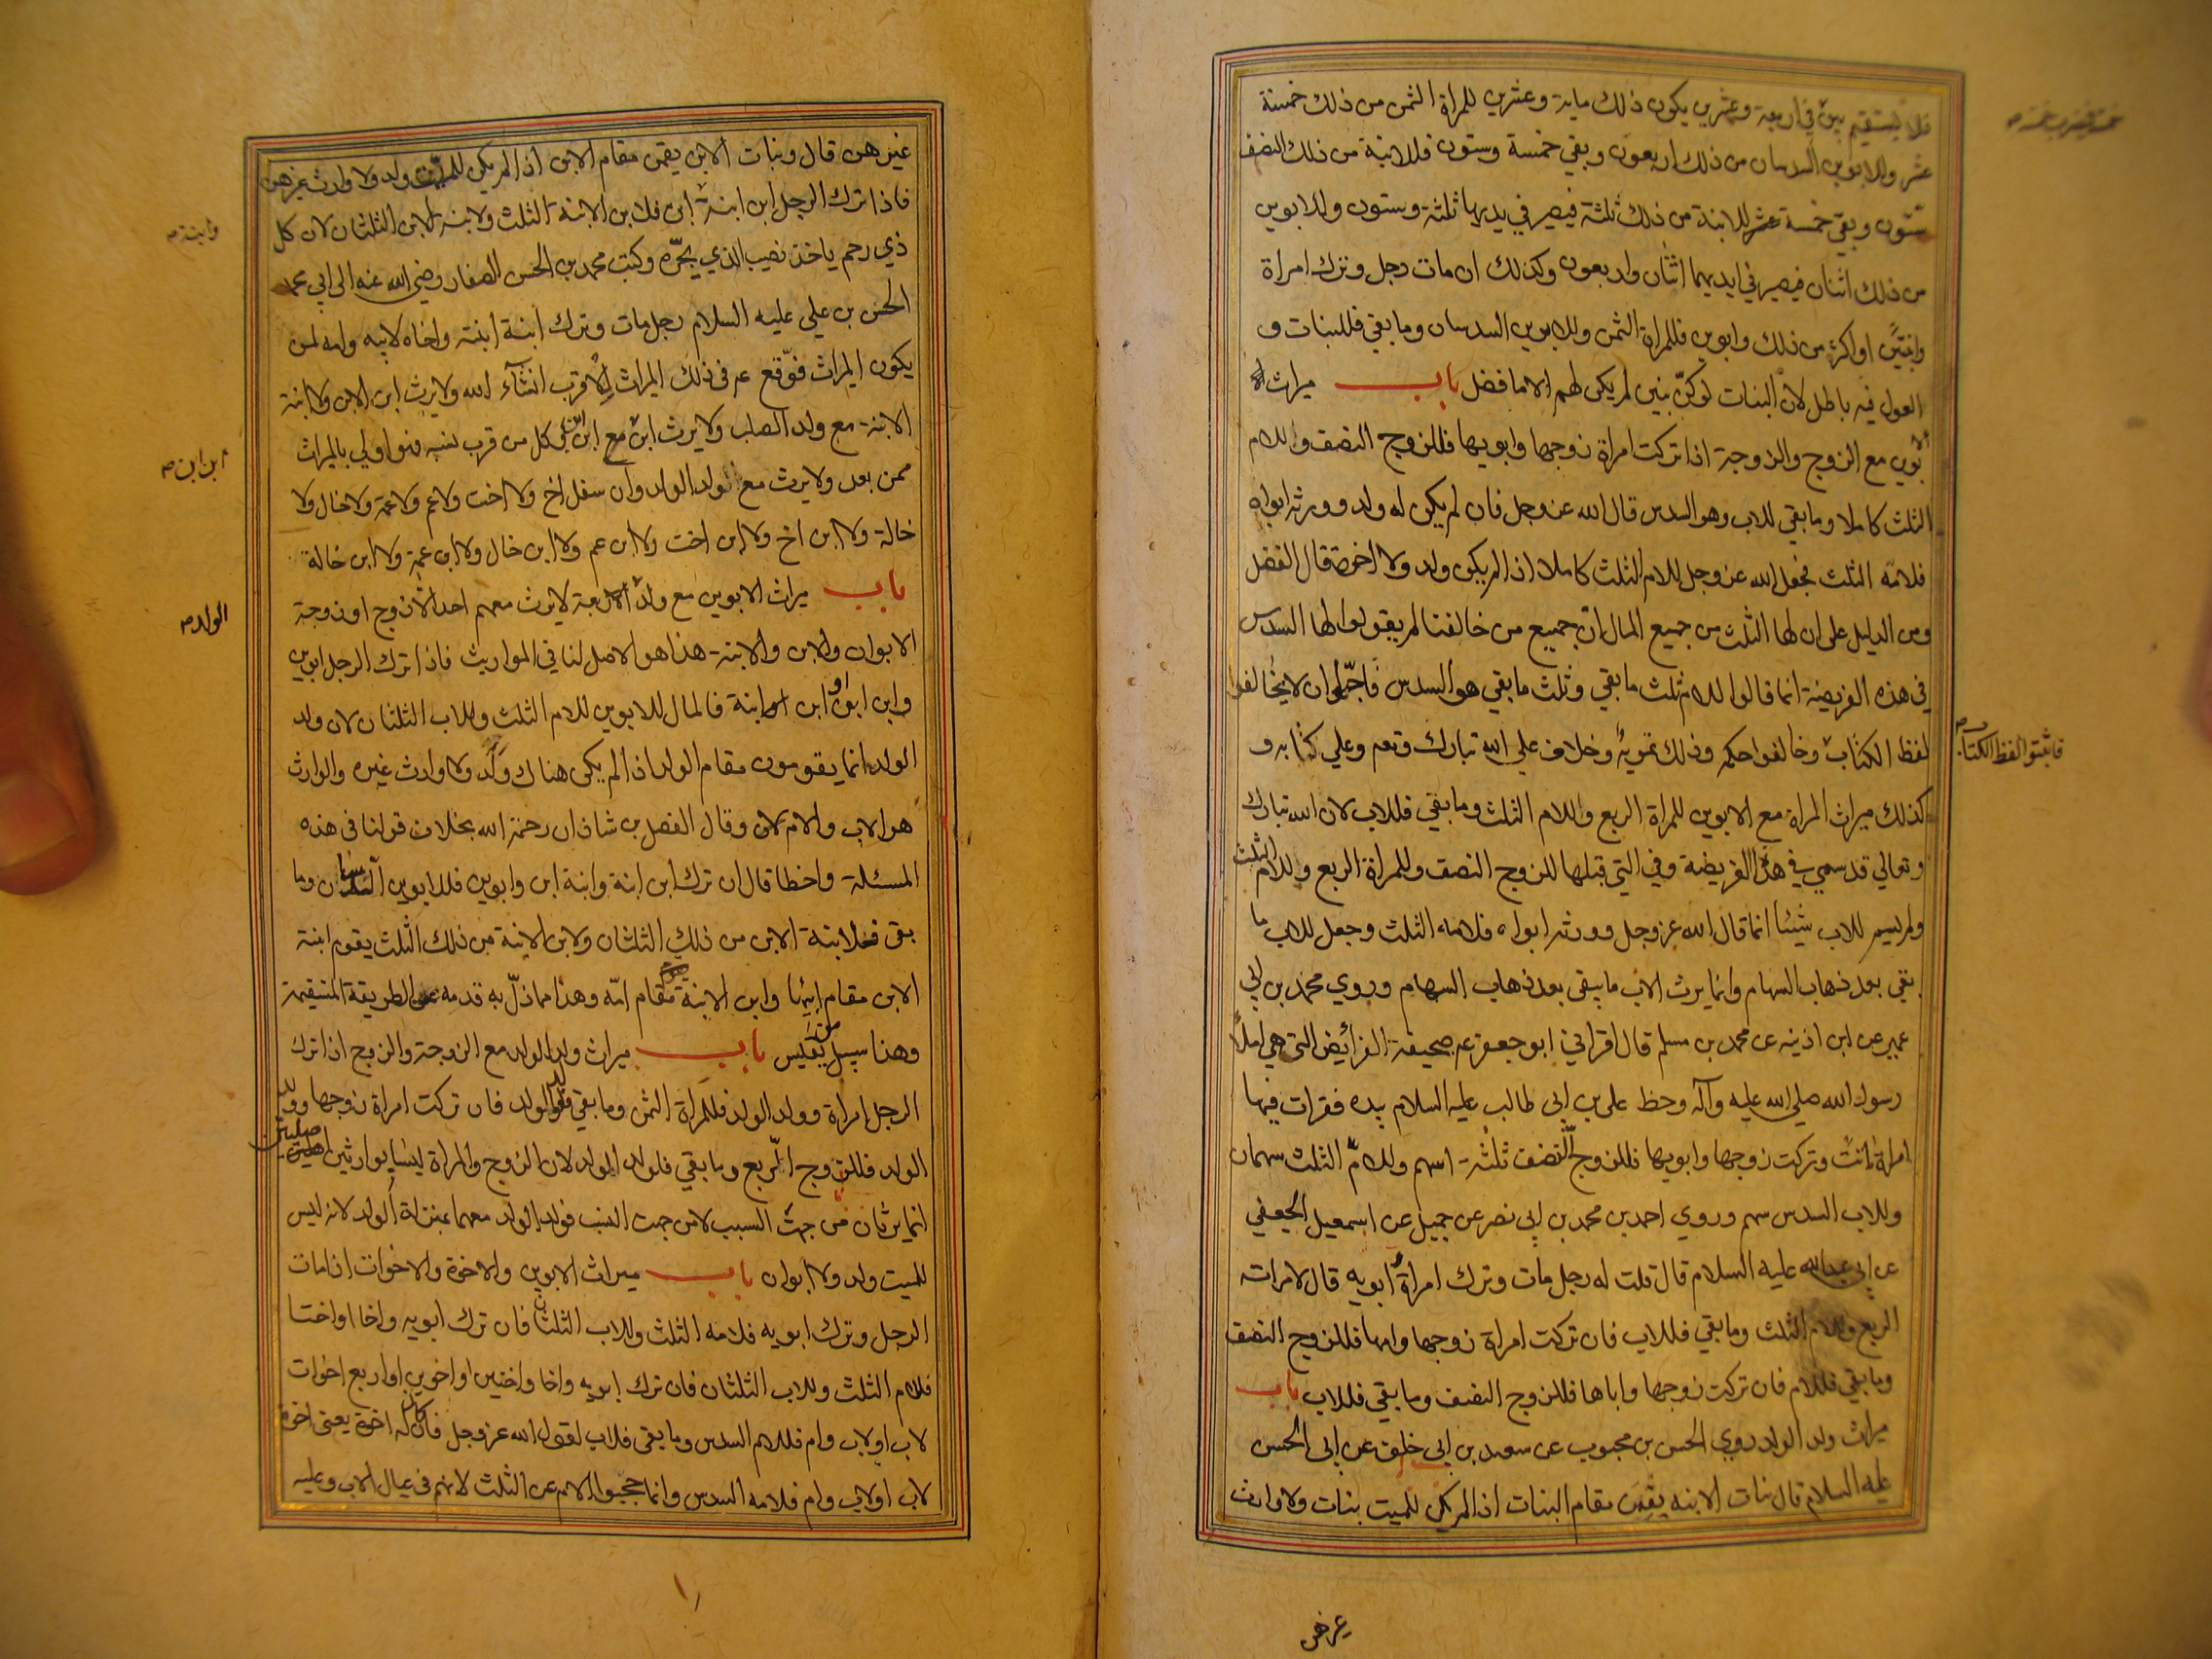 فلا يستقيم بين في اربعة وعشرين يكون ذلك ماية وعشرين للمراة الثمن من ذلك خمسة
عشر وللابوين السدسان من ذلك اربعون وبقي خمسة وستون فللابنة من ذلك النصف
ستون وبقي خمسة عشر للابنة من ذلك ثلثة فيصير في يديها ثلثة وستون وللابوين
من ذلك اثنان فيصير في ايديهما اثنان واربعون وكذلك ان مات رجل وترك امراة
وابنتين او اكثر من ذلك وابوين فللمراة الثمن وللابوين السدسان وما بقي فللبنات و
العول فيه باطل لان البنات لو كن بنين لم يكن لهم الا ما فضل باب ميراث
الابوين مع الزوج والزوجة اذا تركت امراة زوجها وابويها فللزوج النصف وللام
الثلث كاملا وما بقي للاب وهو السدس قال الله عز وجل فان لم يكن له ولد وورثه ابواه
فلامه الثلث فجعل الله عز وجل للام الثلث كاملا اذا لم يكن ولد ولا اخوة قال الفضل
ومن الدليل على ان لها الثلث من جميع المال ان جميع من خالفنا لم يقولوا لها السدس
في هذه الفريضة انما قالوا للام ثلث ما بقي وثلث ما بقي هو السدس فاحبوا ان لا يخالفوا
لفظ الكتاب وخالفوا حكمه وذلك تمويه وخلاف على الله تبارك وتعم وعلي كتابه و
فاثبتوا لفظ الكتاب
كذلك ميراث المراة مع الابوين للمراة الربع وللام الثلث وما بقي فللاب لان الله تبارك
وتعالي قد سمي في هذه الفريضة وفي التي قبلها للزوج النصف وللمراة الربع وللام الثلث
ولم يسم للاب شيئا انما قال الله عز وجل وورثه ابواه فلامه الثلث وجعل للاب ما
بقي بعد ذهاب السهام وانما يرث الاب ما يبقى بعد ذهاب السهام وروي محمد بن ابي
عمير عن ابن اذينه عن محمد بن مسلم قال اقراني ابو جعفر عم صحيفة الفرائض التي هي املا
رسول الله صلي الله عليه وآله وخط علي بن ابي طالب عليه السلام بيده فقرات فيها
امراة ماتت وتركت زوجها وابويها فللزوج النصف ثلثة اسهم وللام الثلث سهمان
وللاب السدس سهم وروي احمد بن محمد بن ابي نصر عن جميل عن اسمعيل الجعفي
عن ابي عبدالله عليه السلام قال قلت له رجل مات وترك امراة وابويه قال لامراته
الربع وللام الثلث وما بقي فللاب فان تركت امراة زوجها وامها فللزوج النصف
وما بقي فللام فان تركت زوجها واباها فللزوج النصف وما بقي فللاب باب
ميراث ولد الولد روي الحسن بن محبوب عن سعد بن ابي خلف عن ابي الحسن
عليه السلام قال بنات الابنه يقمن مقام البنات اذا لم يكن للميت بنات ولا وارث
غيرهن
غيرهن قال وبنات الابن يقمن مقام الابن اذا لم يكن للميت ولد ولا وارث غيرهن
فاذا ترك الرجل ابن ابنة ابن فلابن الابنة الثلث ولابنة الابن الثلثان لان كل
وابنة
ذي رحم ياخذ نصيب الذي يجره وكتب محمد بن الحسن الصفار رضي الله عنه الى ابي محمد
الحسن بن علي عليه السلام رجل مات وترك ابنة ابنته واخاه لابيه وامه لمن
يكون الميراث فوقع عم في ذلك الميراث للاقرب انشآء الله ولا يرث ابن الابن ولا ابنة
الابنة مع ولد الصلب ولا يرث ابن مع ابن ابن وكل من قرب نسبه فهو اولي بالميراث
ابن ابن
ممن بعد ولا يرث مع الولد الولد وان سفل اخ ولا اخت ولا عم ولا عمة ولا خال ولا
خالة ولا ابن اخ ولا ابن اخت ولا ابن عم ولا ابن خال ولا ابن عمة ولا ابن خالة
باب ميراث الابوين مع ولد الولد اربعة لا يرث معهم احد الا زوج او زوجة
الولد
الابوان والابن والابنة هذا هو الاصل لنا في المواريث فاذا ترك الرجل ابوين
وابن ابن او ابن ابنة فالمال للابوين للام الثلث وللاب الثلثان لان ولد
الولد انما يقومون مقام الولد اذا لم يكن هناك ولد ولا وارث غيره والوارث
هو الاب والام وقال الفضل بن شاذان رحمة الله بخلاف قولنا في هذه
المسئلة واخطا قال ان ترك ابن ابنة وابنة ابن وابوين فللابوين السدسان وما
بقى فلابنة الابن من ذلك الثلثان ولابن الابنة من ذلك الثلث يقوم ابنة
الابن مقام ابيها وابن الابنة مقام امه وهذا مما ذل به قدمه عن الطريقة المستقيمة
وهذا سبيل من يقيس باب ميراث ولد الولد مع الزوجة والزوج اذا ترك
الرجل امراة وولد الولد فللمراة الثمن وما بقي فلولد الولد فان تركت امراة زوجها وولد
الولد فللزوج الربع وما بقي فلولد الولد لان الزوج والمراة ليسا بوارثين اصليين
انما يرثان من جهة السبب لا من جهت النسب فولد الولد معهما بمنزلة الولد لانه ليس
للميت ولد ولا ابوان باب ميراث الابوين والاخوة والاخوات اذا مات
الرجل وترك ابويه فلامه الثلث وللاب الثلثان فان ترك ابويه واخا او اختا
فللام الثلث وللاب الثلثان فان ترك ابويه واخا واختين او اخوين او اربع اخوات
لاب او لاب وام فللام السدس وما بقى فلاب لقول الله عز وجل فان كان له اخوة يعنى اخوة
لاب او لاب وام فلامه السدس وانما حجبوا الام عن الثلث لانهم فى عيال الاب وعليه